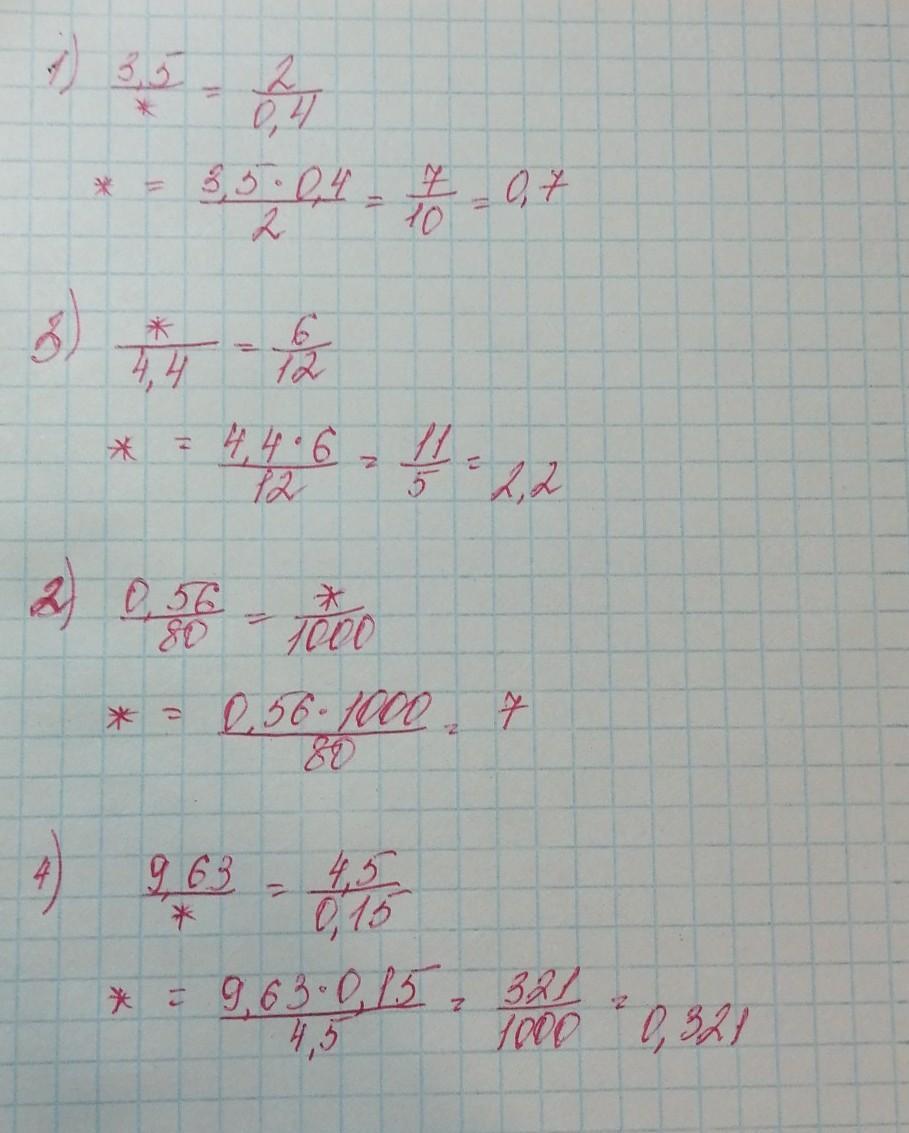 1) 3,5/* = 2/0,4
* = 3,5·0,4/2 = 7/10 = 0,7
3) */4,4 = 6/12
* = 4,4·6/12 = 11/5 = 2,2
2) 0,56/80 = */1000
* = 0,56·1000/80 = 7
4) 9,63/* = 4,5/0,15
* = 9,63·0,15/4,5 = 321/1000 = 0,321